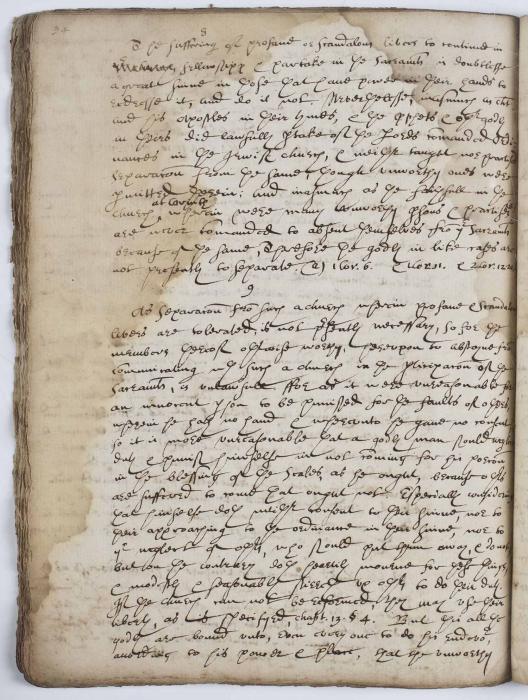 8
The suffering of profane or Scandalous livers to continue in
fellowshipp & partake in the Sacraments is doubtlesse
a great sinne in those that have power in their hands to
redresse it, and do it not. Nevertheless, inasmuch as christ
and his Apostles in their times, & the prophets & other godly
in theirs did lawfully ptake of the Lords comanded Ordi
nances in the Jewish church, & neither taught nor practised
Separacon from the same though unworthy ones were
pmitted therein; and inasmuch as the faithfull in the
church at Corinth, wherein were many unworthy psons & practises
are never comanded to absent themselves fro ye Sacraments
because of the same, Therefore the godly in like cases are
not presently to separate. 1 Cor. 6. & Cor 11. & 2 Cor. 12.
9
As Separacon fro such a church wherein profane & Scandalous
livers are tolerated is not psently necessary, so for the
members thereof otherwise worthy, hereupon to abstayne fro
comunicating with such a church in the pticipacon of the
Sacraments, is unlawfull. ffor as it were unreasonable for
an innocent pson to be punished for the faults of others
wherein he hath no hand & whereunto he gave no consent
so it is more unreasonable that a godly man should neglect
duty & punish himselfe in not coming for his portion
in the blessing of the Seales as he ought, because others
are suffered to come that ought not. Especially considering
that himselfe doth neither consent to their sinne nor to
their approaching to the ordinance in their sinne, nor to
ye neglect of others, who should put them away, & do not
but on the contrary doth heartily mourne for these things
& modestly & seasonably stirre up others to do their duty.
If the church can not be reformed, they may use their
liberty, as is specified, chapt. 13. S 4. But this all the
godly are bound unto, even every one to do his endevor
according to his power & place, that the unworthy